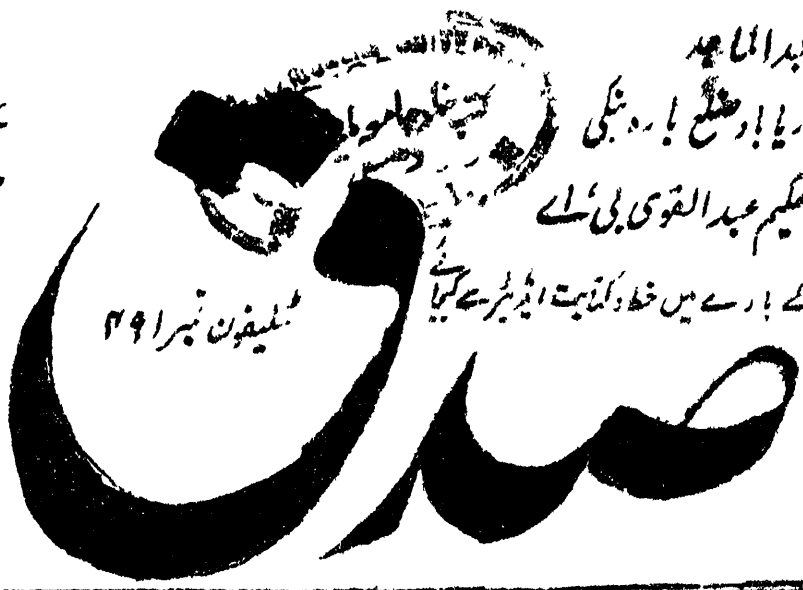 عبدالماجد
دریاباد ضلع بارہ بنکی
حکیم عبدالقوی بی، اے
کے بارے میں خط و کتابت ایڈیٹر سے کیجائے
ٹیلیفون نمبر ۴۹۱
صدق